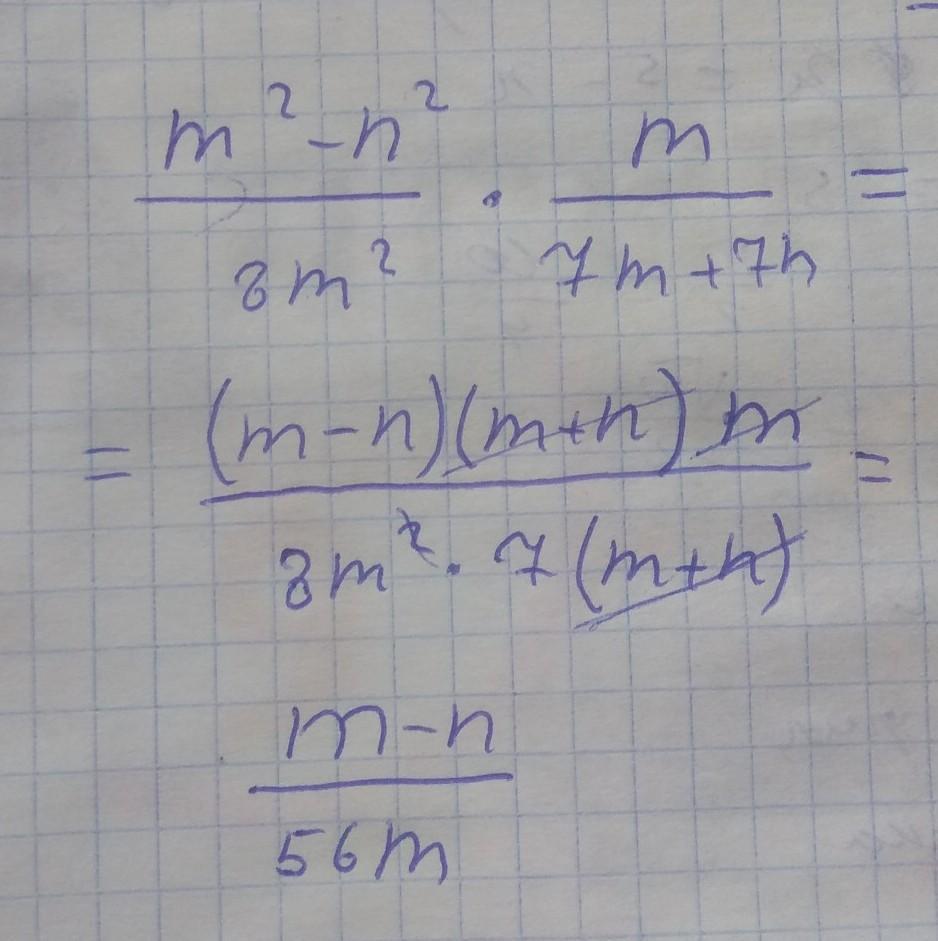 m² - n² / 8m² · m / 7m + 7n =
= (m - n)(m + n) m / 8m² · 7(m + n) =
m - n / 56m